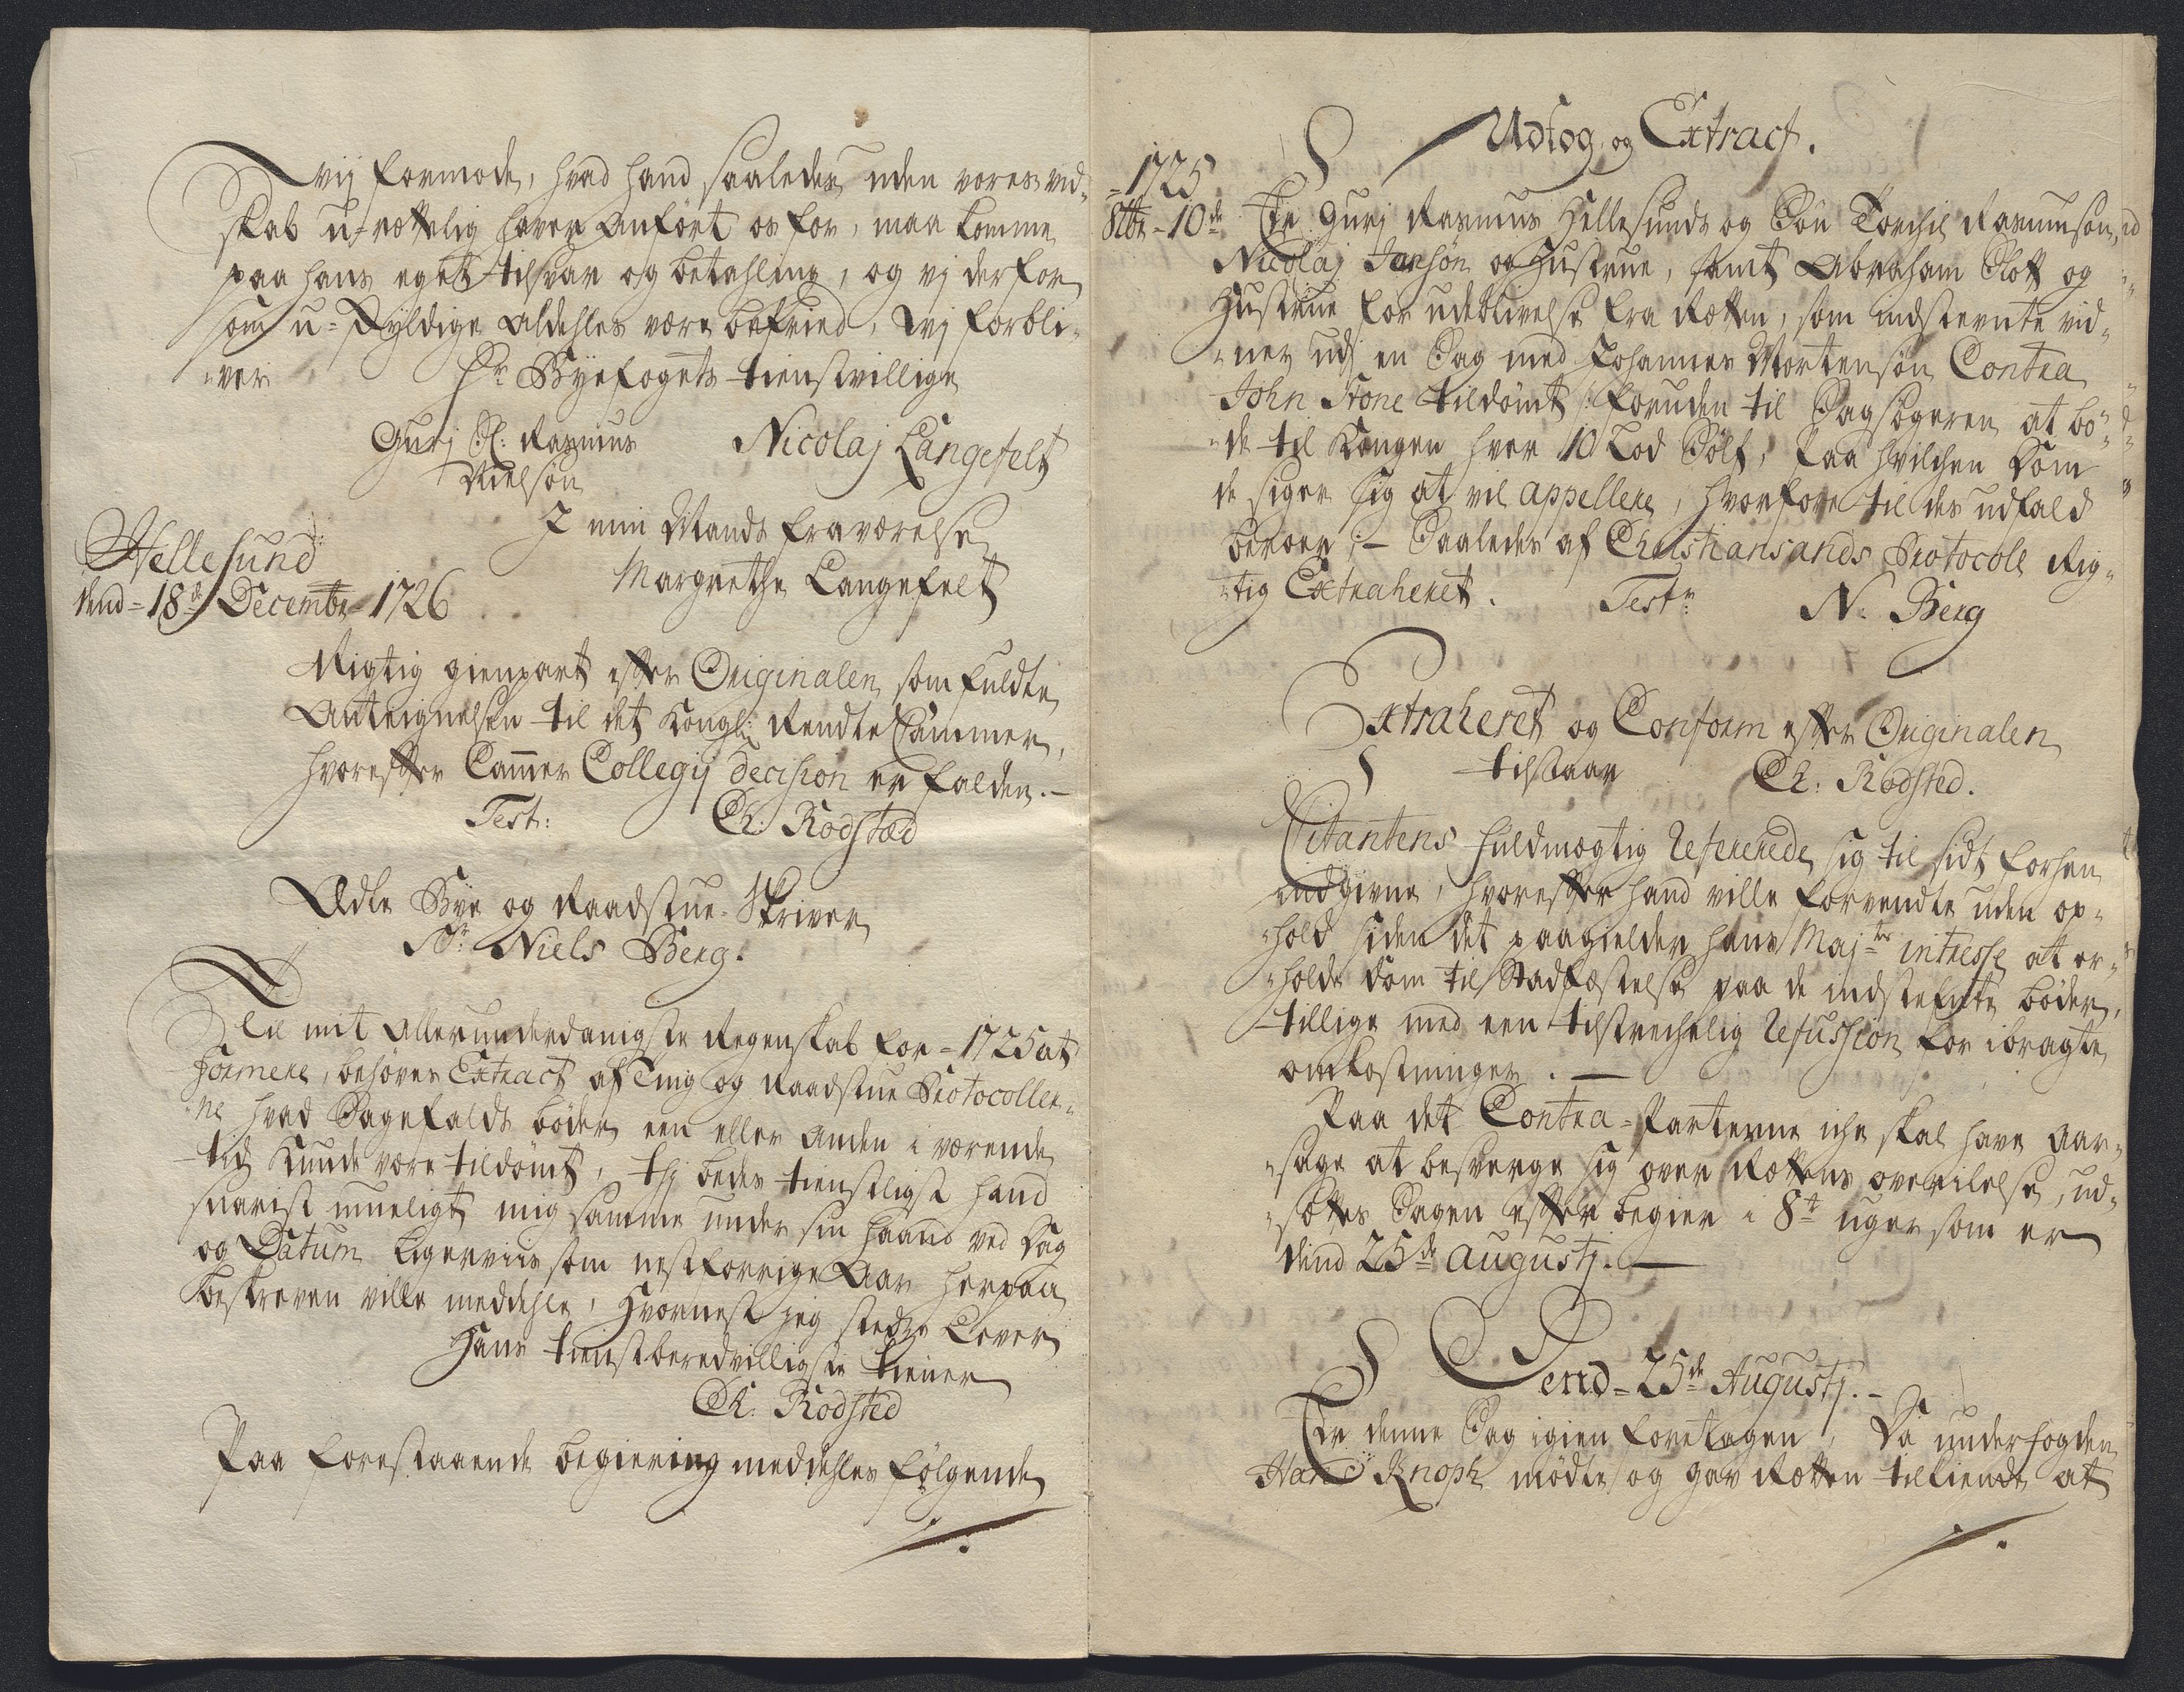 Wij formode, hvad hand saaledes uden vores vid-
skab u-rettelig haver anført os for, maa komme
paa hans eget tilsvar og betahling, og vj derfor
som u-skyldige aldehles være befried, Wij forbli-
-ver
Hr Byefogets tienstvillige
Gurj Sl: Rasmus Nielsøn
Nicolaj Langefelt
I min Mands fraværelse
Margrethe Langefelt
Hellesund
dend-18de Decembr-1726
Rigtig gienpart efter Originalen som fuldte
Anteignelsen til det Kongl: Rendte Cammer,
hvorefter Cammer Collegij decision er falden.-
Test:
Ch: Rodsted
Ædle Bye og Raadstue-Skriver
Sr: Niels Berg.
Til mit allerunderdanigste Regenskab for-1725 at
formere, behøves Extract af Ting og Raadstue Protocoller-
ne hvad Sagefalds bøder een eller anden i værende
tid kunde være tildømt, thj bedes tienstligst hand
snarist mueligt mig samme under sin haand ved Dag
og Datum ligerviis som nestforrige Aar herpaa
beskreven ville meddehle, hvornest jeg stedze lever
Hans tienstberedvilligste tiener
Ch. Rodsted
Paa forestaaende begiering meddehles følgende
Udtog og Extract.
-1725
8tbr-10de
Er Gurj Rasmus Hellesunds og Søn Torchil Rasmusøn,
Nicolaj Jansøn og Hustrue, samt Abraham Slott og
Hustrue for udeblivelse fra Retten, som indstevnte vid-
-ner udj en Sag med Johannes Mortensøn Contra
John Stone tildømt /: foruden til Sagsøgeren at bø-
-de til Kongen hver 10 Lod Sølf, Paa hvilchen Dom
de siger sig at vil appellere, hvorfore til des udfald
beroer ;- Saaledes af Christiansands Protocoll Rig-
-tig Extraheret.
Testr:
N. Berg
Extraheret og Conform efter Originalen
tilstaar
Ch: Rodsted.
Citantens fuldmægtig refererede sig til sidt forhen
indgivne, hvorefter hand ville forvendte uden op-
-hold siden det paagielder hans Majts intresse at er-
-holde dom til Stadfæstelse paa de indstefnte bøder,
tillige med een tilstrechelig refussion for ibragte
omkostninger.-
Paa det Contra-Parterne iche skal have Aar-
-sage at besverge sig over Rettens overilelse, ud-
-settes Sagen efter begier i 8te uger som er
dend 25de augustj.-
Dend-25de Augustj.-
Er denne Sag igien foretagen, Da underfogden
Hans Knoph mødte og gav Retten tilkiende at